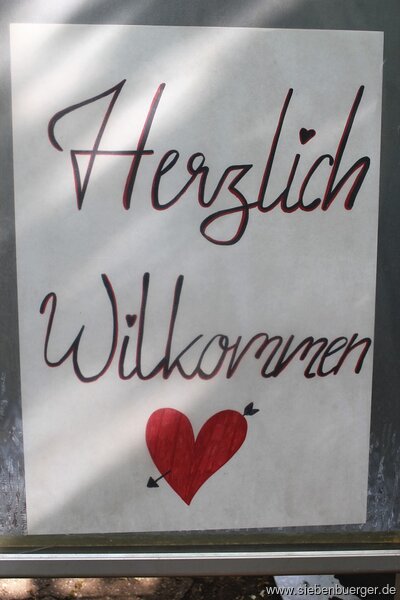 Herzlich
Wilkommen
www.siebenbuerger.de